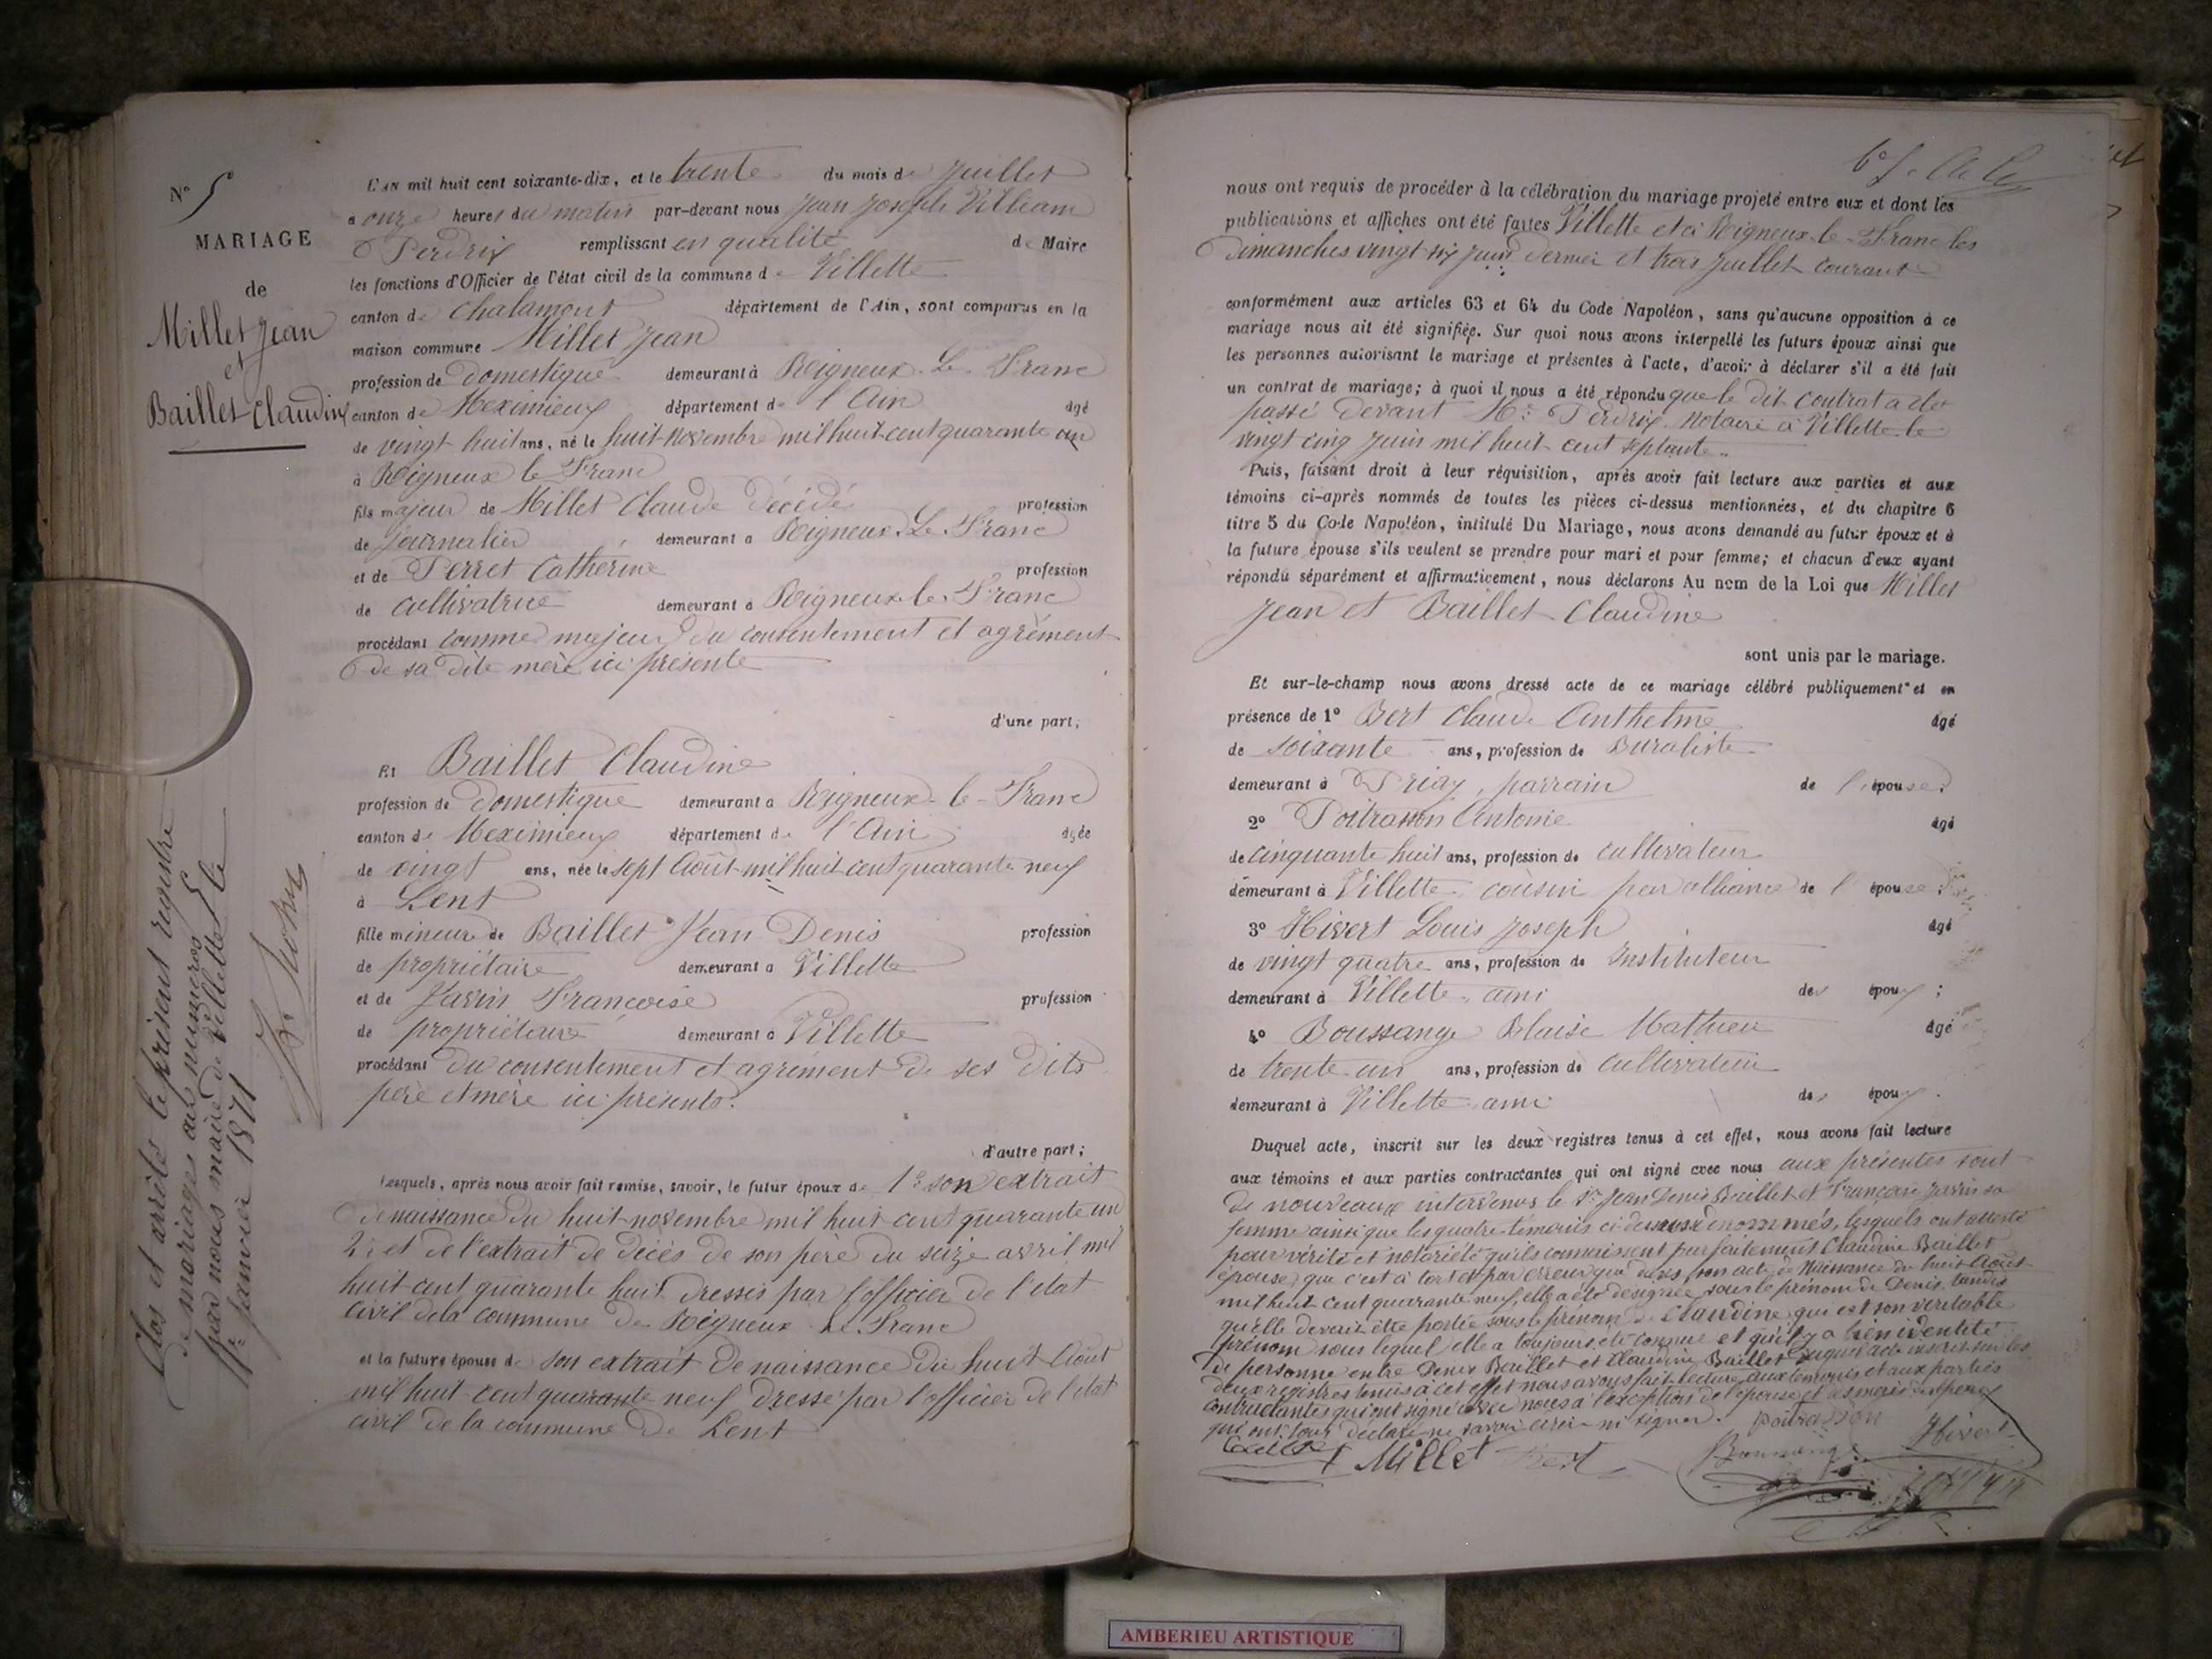 N° 5
MARIAGE
de
Millet Jean
et
Baillet Claudine
L'AN mil huit cent soixante-dix, et le trente du mois de Juillet
a onze heures du matin par-devant nous Jean Joseph William
Perdrix remplissant en qualité de Maire
les fonctions d'Officier de l'état civil de la commune de Villette
canton de Chalamont département de l'Ain, sont comparus en la
maison commune Millet Jean
profession de Domestique demeurant à Rigneux-Le-Franc
canton de Meximieux département de l'Ain âgé
de vingt huit ans, né le huit Novembre mil huit cent quarante un
à Rigneux le Franc
fils majeur de Millet Claude Décédé profession
de journalier demeurant a Rigneux-Le-Franc
et de Perret Catherine profession
de cultivatrice demeurant a Rigneux-le-Franc
procédant comme majeur du consentement et agrément
de sa dite mère ici présente
d'une part;
Et Baillet Claudine
profession de Domestique demeurant a Rigneux-le-Franc
canton de Meximieux département de l'Ain âgée
de vingt ans, née le sept Août mil huit cent quarante neuf
à Lent
fille mineure de Baillet Jean Denis profession
de propriétaire demeurant a Villette
et de Jarrin Françoise profession
de propriétaire demeurant a Villette
procédant du consentement et agrément de ses dits
père et mère ici présents.
d'autre part;
Lesquels, après nous avoir fait remise, savoir, le futur époux de 1° son extrait
de naissance du huit novembre mil huit cent quarante un
2° et de l'extrait de décès de son père du seize avril mil
huit cent quarante huit dressés par l'officier de l'état
civil de la commune de Rigneux-le-Franc
et la future épouse de son extrait de naissance du huit Août
mil huit cent quarante neuf dressé par l'officier de l'état
civil de la commune de Lent
Clos et arrêté le présent registre
de mariages au numéro 5
par nous maire de Villette le
1er janvier 1871
nous ont requis de procéder à la célébration du mariage projeté entre eux et dont les
publications et affiches ont été faites Villette et à Rigneux-le-Franc les
dimanches vingt-six juin dernier et trois juillet courant
conformément aux articles 63 et 64 du Code Napoléon, sans qu'aucune opposition à ce
mariage nous ait été signifiée. Sur quoi nous avons interpellé les futurs époux ainsi que
les personnes autorisant le mariage et présentes à l'acte, d'avoir à déclarer s'il a été fait
un contrat de mariage; à quoi il nous a été répondu que le dit contrat a été
passé devant Me Perdrix Notaire à Villette le
vingt cinq juin mil huit cent septante.
Puis, faisant droit à leur réquisition, après avoir fait lecture aux parties et aux
témoins ci-après nommés de toutes les pièces ci-dessus mentionnées, et du chapitre 6
titre 5 du Code Napoléon, intitulé Du Mariage, nous avons demandé au futur époux et à
la future épouse s'ils veulent se prendre pour mari et pour femme; et chacun d'eux ayant
répondu séparément et affirmativement, nous déclarons Au nom de la Loi que Millet
Jean et Baillet Claudine
sont unis par le mariage.
Et sur-le-champ nous avons dressé acte de ce mariage célébré publiquement et en
présence de 1° Bert Claude Anthelme âgé
de soixante ans, profession de Buraliste
demeurant à Priay, parrain de l'épouse;
2° Poitrasson Antonie âgé
de cinquante huit ans, profession de cultivateur
demeurant à Villette cousin par alliance de l'épouse;
3° Hivert Louis Joseph âgé
de vingt quatre ans, profession de Instituteur
demeurant à Villette ami des époux;
4° Boussange Blaise Mathieu âgé
de trente un ans, profession de Cultivateur
demeurant à Villette ami des époux.
Duquel acte, inscrit sur les deux registres tenus à cet effet, nous avons fait lecture
aux témoins et aux parties contractantes qui ont signé avec nous aux présentes sont
de nouveaux intervenus le Sr Jean Denis Baillet et Françoise Jarrin sa
femme ainsi que les quatre témoins ci dessus dénommés, lesquels ont attesté
pour vérité et notoriété qu'ils connaissent parfaitement Claudine Baillet
épouse, que c'est à tort et par erreur que dans son acte de Naissance du huit Août
mil huit cent quarante neuf, elle a été désignée sous le prénom de Denis tandis
qu'elle devait être portée sous le prénom de Claudine qui est son véritable
prénom sous lequel elle a toujours été connue et qu'il y a bien identité
de personne entre Denis Baillet et Claudine Baillet duquel acte inscrit sur les
deux registres tenus à cet effet nous avons fait lecture aux témoins et aux parties
contractantes qui ont signé avec nous à l'exception de l'épouse et
qui ont tous déclaré ne savoir écrire ni signer. Poitrasson
Baillet Millet Bert Boussange Hivert
AMBERIEU ARTISTIQUE